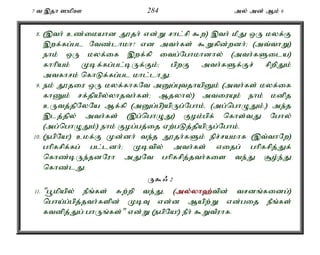 7 வ இதா ஸமிஊ 284 அல் அன் ஆம் 6
8. (இவர் உண்மையான தூதர் என்று சாட்சி கூற) இவர் மீது ஒரு மலக்கு
இறக்கப்பட வேண்டாமா? என அவர்கள் கூறுகின்றனர்; (அவ்வாறு)
நாம் ஒரு மலக்கை இறக்கி வைப்போமானால் (அவர்களுடைய)
காரியம் முடிக்கப்பட்டிருக்கும்; பிறகு அவர்களுக்குச் சிறிதும்
அவகாசம் கொடுக்கப்பட மாட்டாது.
9. நம் தூதரை ஒரு மலக்காகவே அனுப்புவதாயினும் (அவர்கள் மலக்கை
காணும் சக்தியில்லாதவர்கள்; ஆதலால்) அவரையும் நாம் மனித
உருவத்திலேயே ஆக்கி (அனுப்பி)யிருப்போம். (அப்பொழுதும்,) அந்த
இடத்தில் அவர்கள் (இப்பொழுது) குழம்பிக் கொள்வது போல்
(அப்பொழுதும்) நாம் குழப்பத்தை ஏற்படுத்தியிருப்போம்.
10. (நபியே) உமக்கு முன்னர் வந்த தூதர்களும் நிச்சயமாக (இவ்வாறே)
பரிகசிக்கப் பட்டனர்; முடிவில் அவர்கள் எதைப் பரிகசித்துக்
கொண்டிருந்தனரோ அதுவே பரிகசித்தவர்களை வந்து சூழ்ந்து
கொண்டது.
ருகூஃ 2
11. "பூமியில் நீங்கள் சுற்றி வந்து, (அல்லாஹ்வின் வசனங்களைப்)
பொய்ப்பித்தவர்களின் முடிவு என்ன ஆயிற்று என்பதை நீங்கள்
கவனித்துப் பாருங்கள்" என்று (நபியே) நீர் கூறுவீராக.